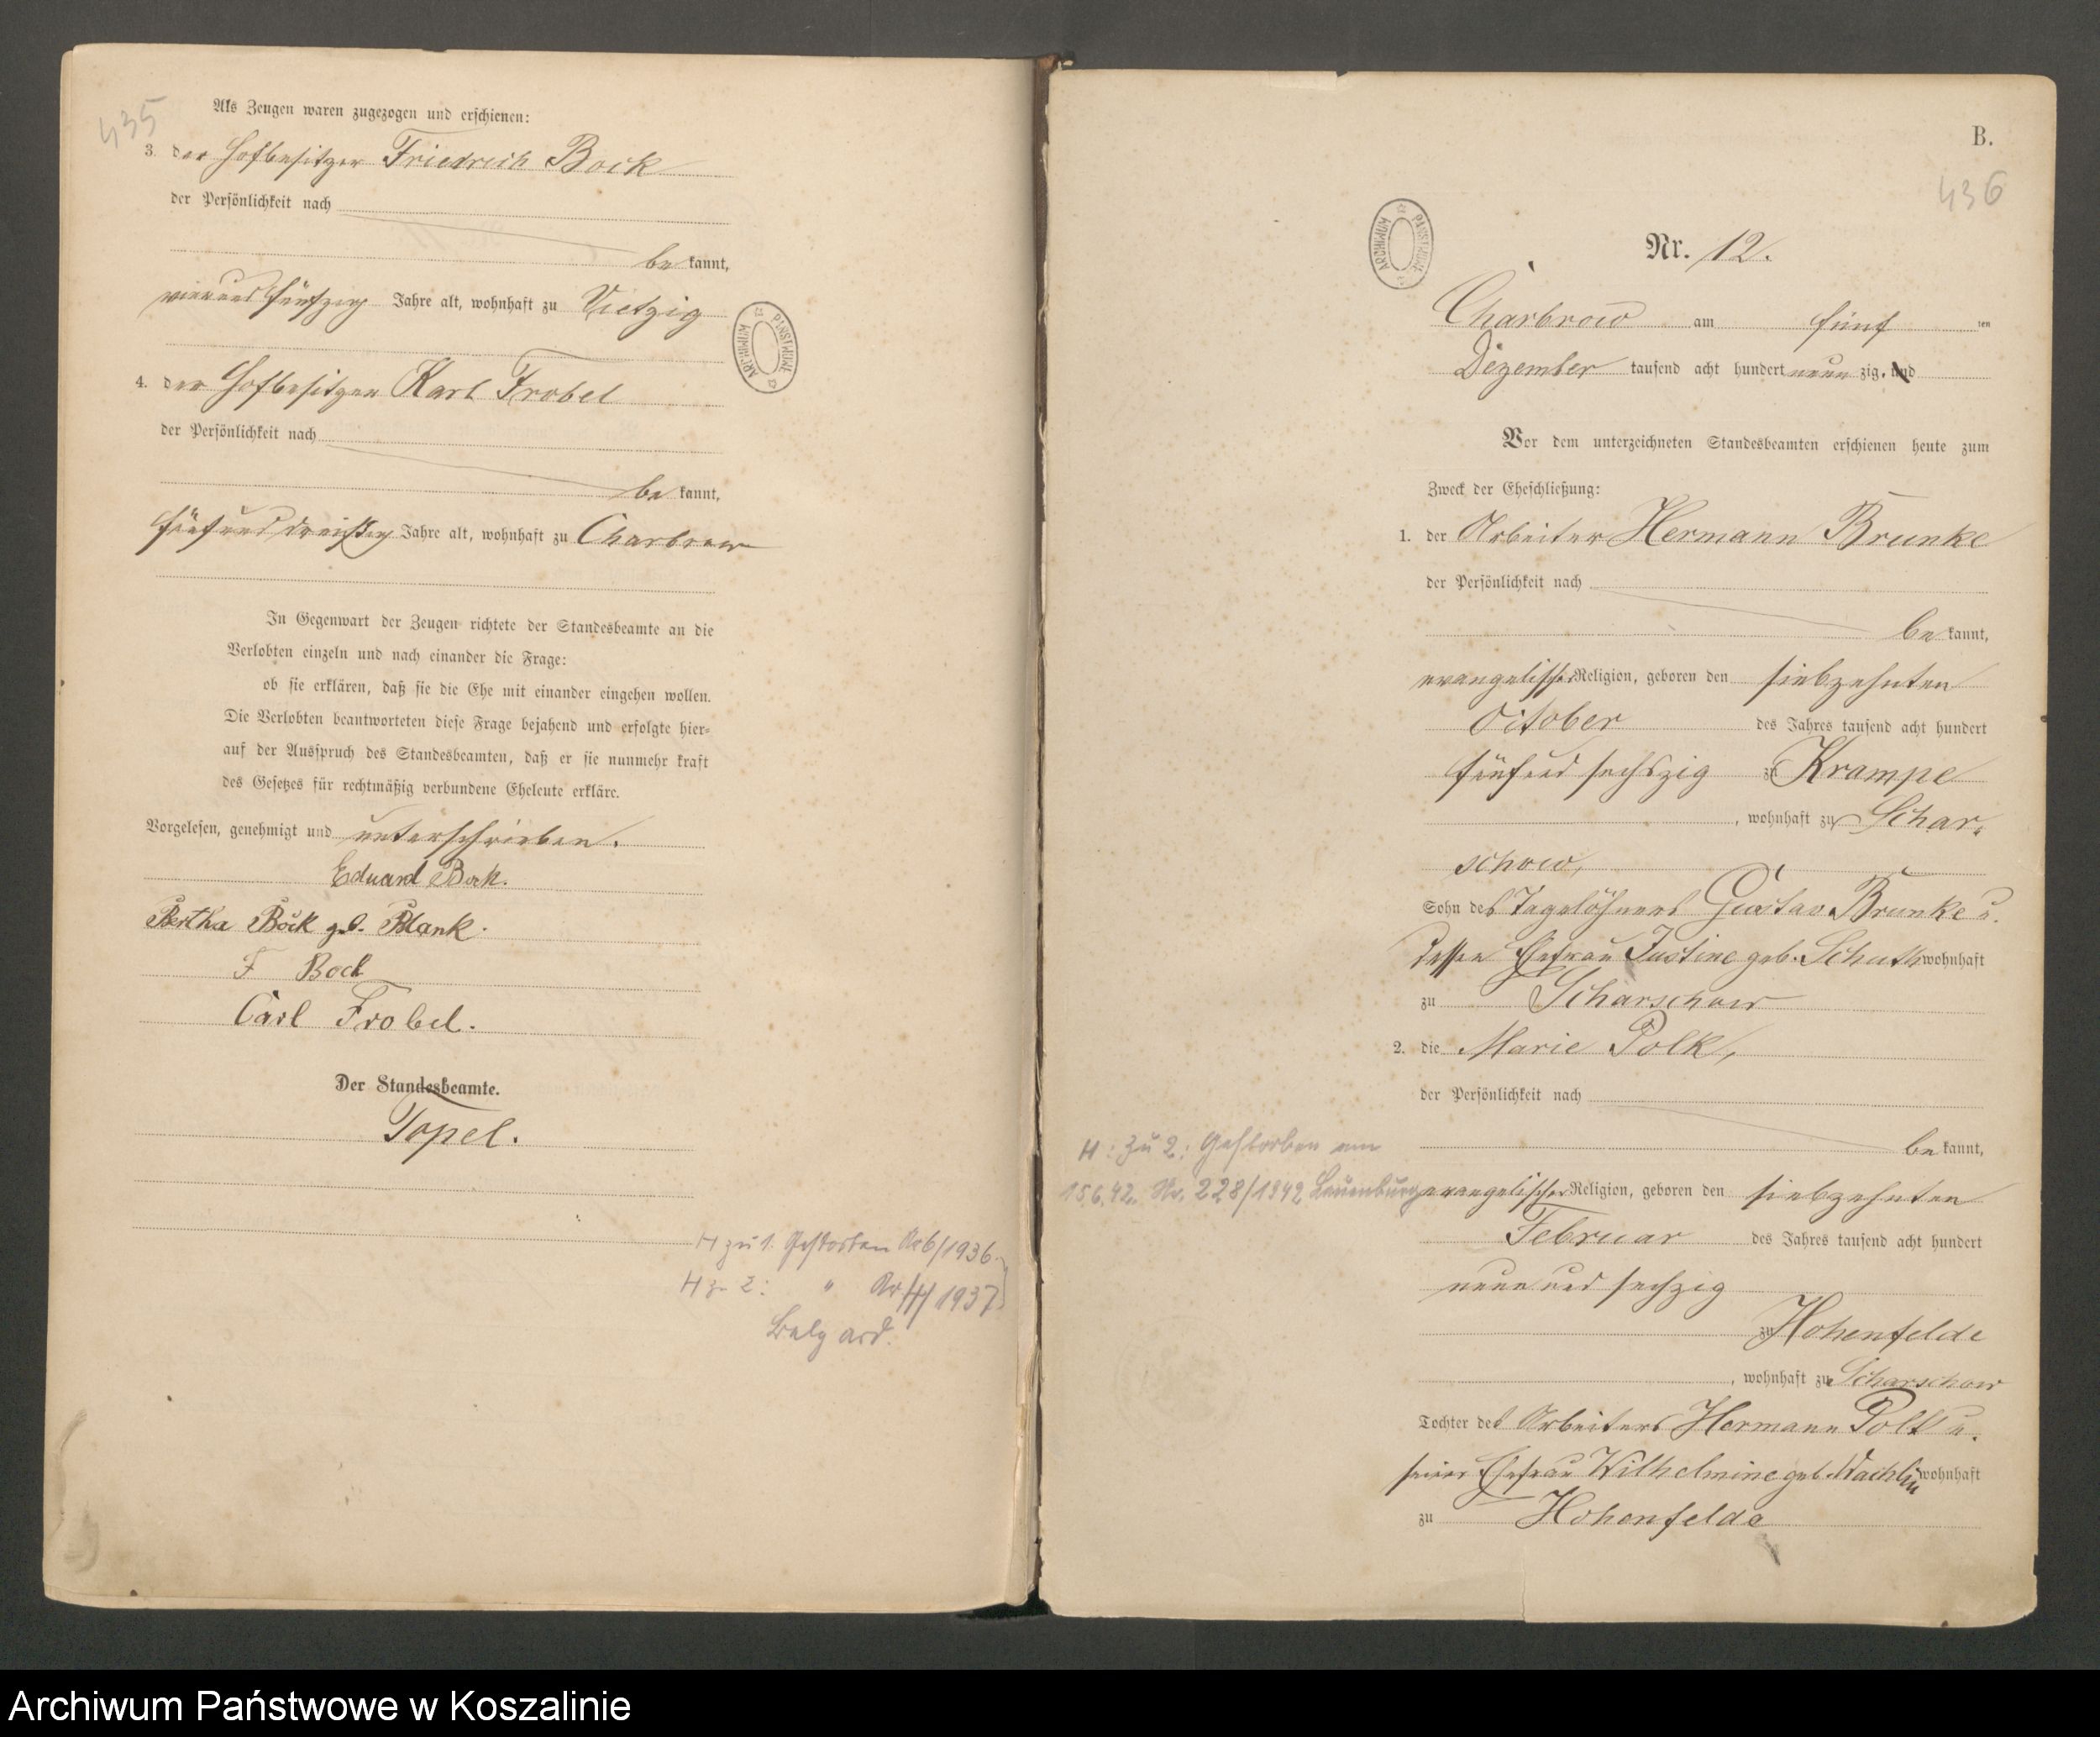 435
Als Zeugen waren zugezogen und erschienen:
3. der Hofbesitzer Friedrich Bock
der Persönlichkeit nach
be kannt,
vierundfünfzig Jahre alt, wohnhaft zu Vietzig
ARCHIWUM PAŃSTWOWE
4. der Hofbesitzer Karl Frobel
der Persönlichkeit nach
be kannt,
fünfunddreißig Jahre alt, wohnhaft zu Charbrow
In Gegenwart der Zeugen richtete der Standesbeamte an die
Verlobten einzeln und nach einander die Frage:
ob sie erklären, daß sie die Ehe mit einander eingehen wollen.
Die Verlobten beantworteten diese Frage bejahend und erfolgte hier-
auf der Ausspruch des Standesbeamten, daß er sie nunmehr kraft
des Gesetzes für rechtmäßig verbundene Eheleute erkläre.
Vorgelesen, genehmigt und unterschrieben.
Eduard Bock.
Bertha Bock geb. Blank.
F Bock
Carl Frobel.
Der Standesbeamte.
Topel.
H zu 1. Gestorben Nr 6/1936
H zu 2: " Nr 1937
Belgard.
B.
436
ARCHIWUM PAŃSTWOWE
Nr. 12.
Charbrow am fünf ten
Dezember tausend acht hundert neun zig. und
Vor dem unterzeichneten Standesbeamten erschienen heute zum
Zweck der Eheschließung:
1. der Arbeiter Hermann Brunke
der Persönlichkeit nach
be kannt,
evangelischer Religion, geboren den siebzehnten
October des Jahres tausend acht hundert
fünfund sechszig zu Krampe
, wohnhaft zu Schar-
schow,
Sohn des Tagelöhners Gustav Brunke u.
dessen Ehefrau Justine geb. Schuth wohnhaft
zu Scharschow
2. die Marie Polk,
der Persönlichkeit nach
be kannt,
H: Zu 2.: Gestorben am
15.6.42. Nr. 228/1942 Lauenburg
evangelischer Religion, geboren den siebzehnten
Februar des Jahres tausend acht hundert
neun und sechzig
zu Hohenfelde
, wohnhaft zu Scharschow
Tochter des Arbeiters Hermann Polk u.
seiner Ehefrau Wilhelmine geb. Wachlin wohnhaft
zu Hohenfelde
Archiwum Państwowe w Koszalinie